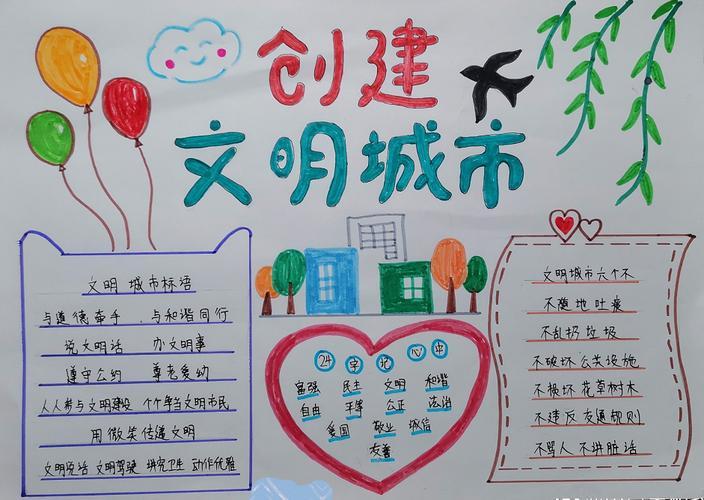 创建
文明城市
文明 城市标语
与道德牵手 与和谐同行
说文明话 办文明事
遵守公约 尊老爱幼
人人参与文明建设 个个争当文明市民
用微笑传递文明
文明说话 文明驾驶 讲究卫生 动作优雅
24字记心中
富强 民主 文明 和谐
自由 平等 公正 法治
爱国 敬业 诚信
友善
文明城市六个不
不随地吐痰
不乱扔垃圾
不破坏公共设施
不损坏花草树木
不违反交通规则
不骂人 不讲脏话